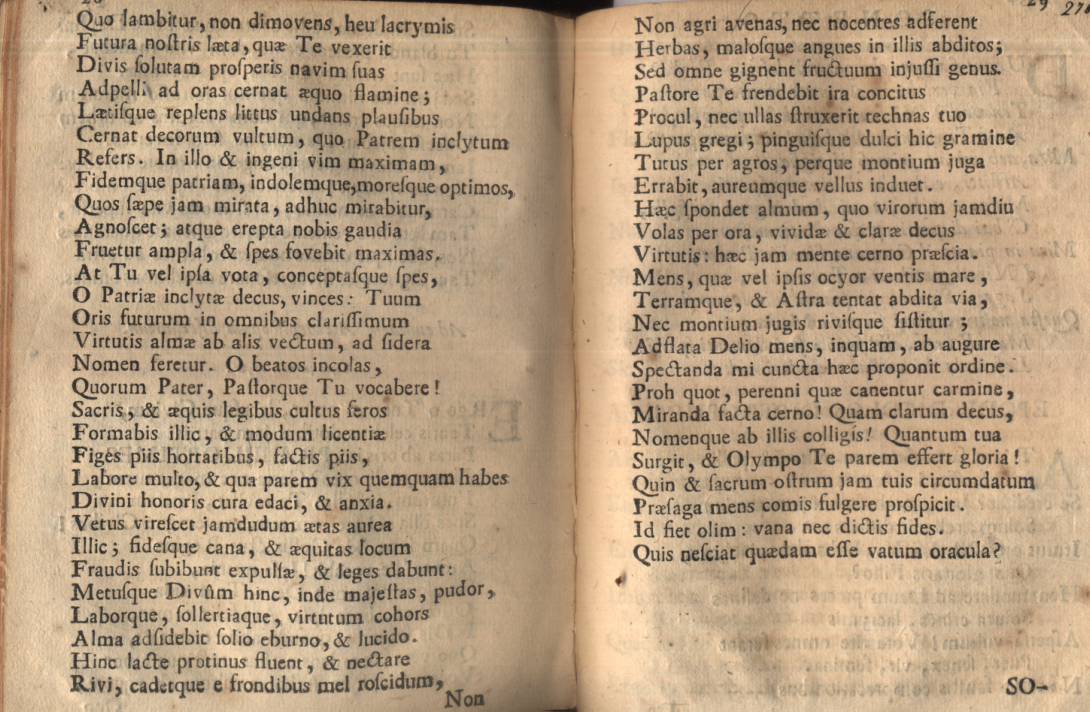 Quo lambitur, non dimovens, heu lacrymis
Futura noſtris læta, quæ Te vexerit
Divis ſolutam proſperis navim ſuas
Adpelli ad oras cernat æquo flamine;
Lætiſque replens littus undans plauſibus
Cernat decorum vultum, quo Patrem inclytum
Refers. In illo & ingeni vim maximam,
Fidemque patriam, indolemque, moreſque optimos,
Quos ſæpe jam mirata, adhuc mirabitur,
Agnoſcet; atque erepta nobis gaudia
Fruetur ampla, & ſpes fovebit maximas.
At Tu vel ipſa vota, conceptaſque ſpes,
O Patriæ inclytæ decus, vinces: Tuum
Oris futurum in omnibus clariſſimum
Virtutis almæ ab alis vectum, ad ſidera
Nomen feretur. O beatos incolas,
Quorum Pater, Paſtorque Tu vocabere!
Sacris, & æquis legibus cultus feros
Formabis illic, & modum licentiæ
Figes piis hortatibus, factis piis,
Labore multo, & qua parem vix quemquam habes
Divini honoris cura edaci, & anxia.
Vetus vireſcet jamdudum ætas aurea
Illic; fideſque cana, & æquitas locum
Fraudis ſubibunt expulſæ, & leges dabunt:
Metuſque Divûm hinc, inde majeſtas, pudor,
Laborque, ſollertiaque, virtutum cohors
Alma adſidebit ſolio eburno, & lucido.
Hinc lacte protinus fluent, & nectare
Rivi, cadetque e frondibus mel roſcidum,
Non
29
Non agri avenas, nec nocentes adferent
Herbas, maloſque angues in illis abditos;
Sed omne gignent fructuum injuſſi genus.
Paſtore Te frendebit ira concitus
Procul, nec ullas ſtruxerit technas tuo
Lupus gregi; pinguiſque dulci hic gramine
Tutus per agros, perque montium juga
Errabit, aureumque vellus induet.
Hæc ſpondet almum, quo virorum jamdiu
Volas per ora, vividæ & claræ decus
Virtutis: hæc jam mente cerno præſcia.
Mens, quæ vel ipſis ocyor ventis mare,
Terramque, & Aſtra tentat abdita via,
Nec montium jugis riviſque ſiſtitur;
Adflata Delio mens, inquam, ab augure
Spectanda mi cuncta hæc proponit ordine.
Proh quot, perenni quæ canentur carmine,
Miranda facta cerno! Quam clarum decus,
Nomenque ab illis colligis! Quantum tua
Surgit, & Olympo Te parem effert gloria!
Quin & ſacrum oſtrum jam tuis circumdatum
Præſaga mens comis fulgere proſpicit.
Id fiet olim: vana nec dictis fides.
Quis neſciat quædam eſſe vatum oracula?
SO-